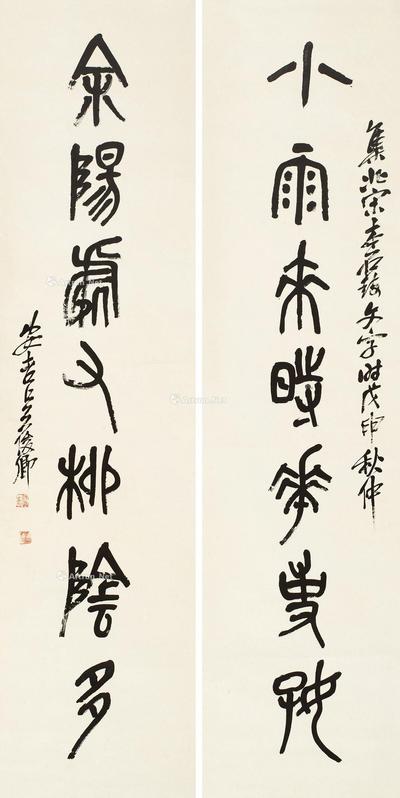 小雨來時華更好
集北宋本石鼓文字時戊申秋仲
余陽處又柳陰多
安吉吳俊卿
Artron.Net